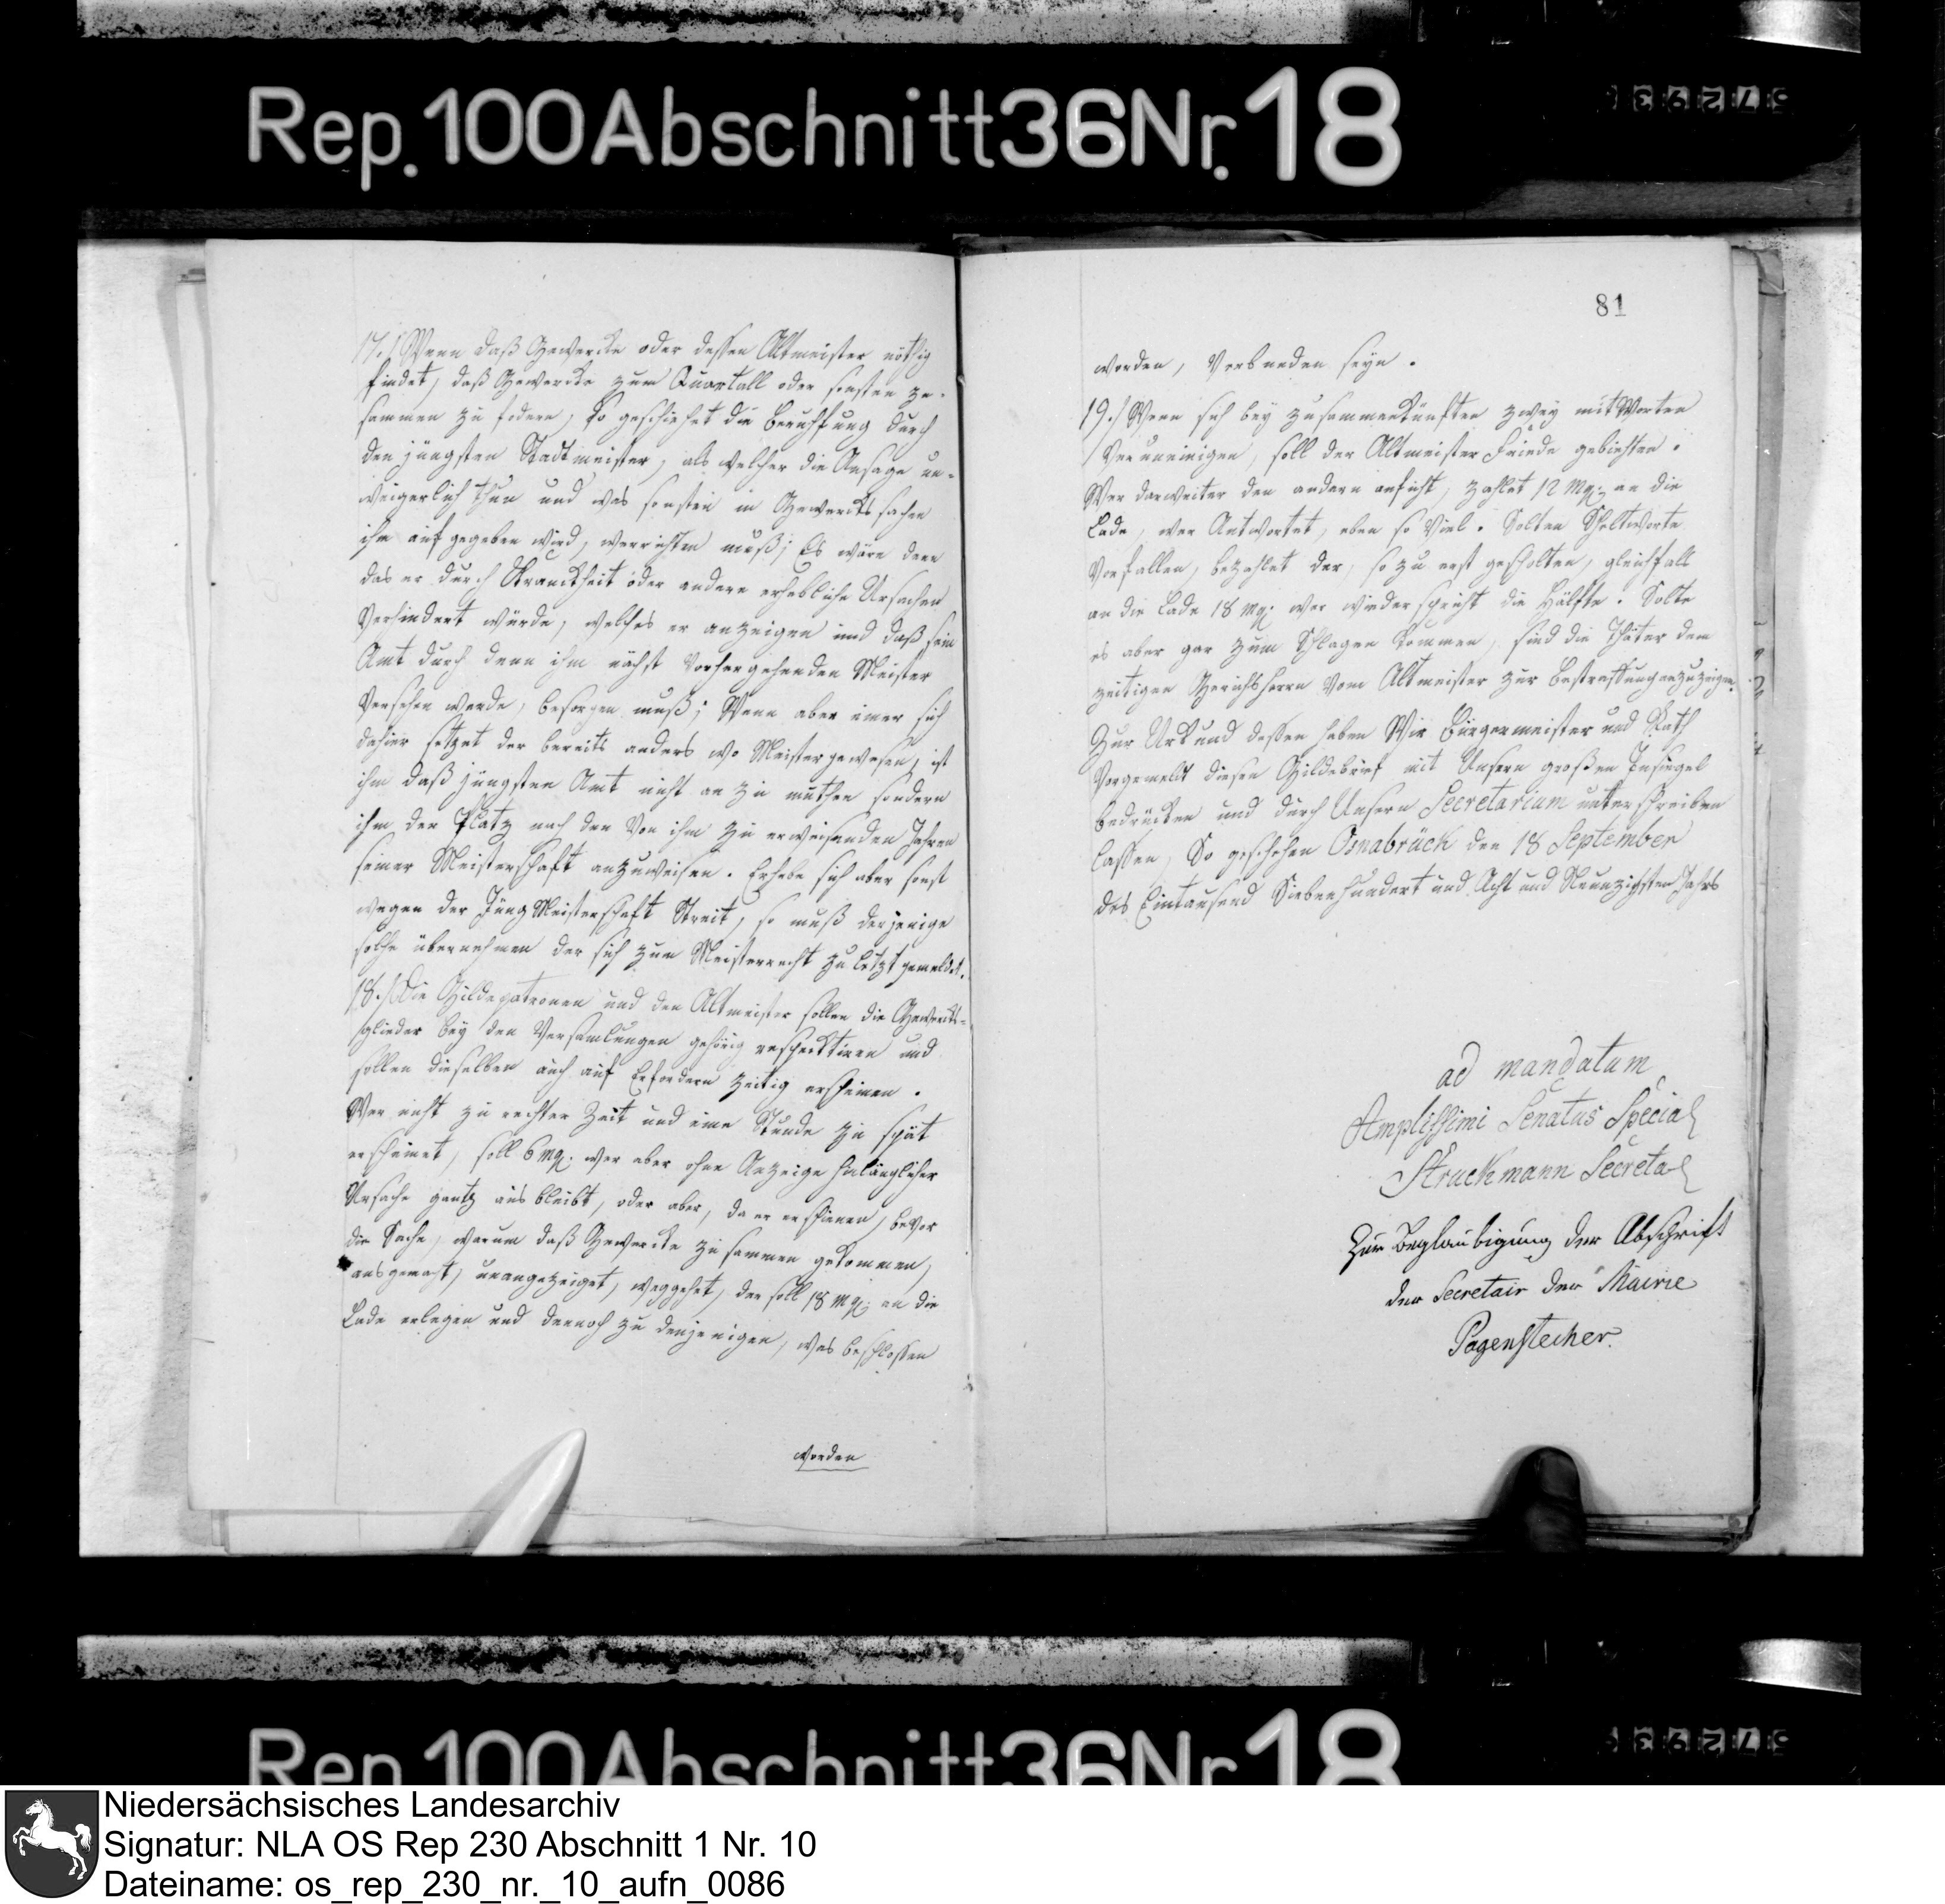 Rep. 100 Abschnitt 36 Nr. 18
17./ Wenn daß Gewercke oder dessen Altmeister nöthig
findet, daß Gewercke zum Quartall oder sonsten zu-
sammen zu fodern, so geschiehet die Beruffung durch
den jüngsten Stadtmeister, als welcher die Ansage un-
weigerlich thun und was sonsten in Gewercks sachen
ihm aufgegeben wird, verrichten muß; Es wäre denn
das er durch Kranckheit oder andere erhebliche Ursachen
Verhindert würde, welches er anzeigen und daß sein
Amt durch denn ihm nächst Vorhergehenden Meister
Versehen werde, besorgen muß; Wenn aber einer sich
dahier setzet der bereits anders wo Meister gewesen, ist
ihm daß jüngsten Amt nicht an zu muthen sondern
ihm der Platz nach den Von ihm zu erweisenden Jahren
seiner Meisterschaft anzuweisen. Erhebe sich aber sonst
wegen der Jüng Meisterschaft Streit, so muß derjenige
solche übernehmen der sich zum Meisterrecht zu letzt gemeldet.
18./ Die Gildepatronen und den Altmeister sollen die Gewercks-
glieder bey den Versamlungen gehörig respecktiren und
sollen dieselben auch auf Erfordern zeitig erscheinen.
Wer nicht zu rechter Zeit und eine Stunde zu spät
erscheinet, soll 6 mg. wer aber ohne Anzeige hinlänglicher
Ursache gantz aus bleibt, oder aber, da er erschienen, bevor
die Sache, warum daß Gewercke zusammen gekommen,
ausgemacht, unangezeiget, weggehet, der soll 18 mg. an die
Lade erlegen und dennoch zu denjenigen, was beschlossen
worden
81
worden, Verbunden seyn.
19./ Wenn sich bey zusammenkünften zwey mit Worten
Veruneinigen, soll der Altmeister Friede gebiethen.
Wer darweiter den andern anficht, zahlet 12 mg. an die
Lade, wer Antwortet, eben so Viel. Solten Scheltworte
Vorfallen, bezahlet der, so zu erst gescholten, gleichfalls
an die Lade 18 mg. wer wiederspricht die Hälfte. Solte
es aber gar zum Schlagen kommen, sind die Thäter dem
zeitigen Gerichtsherrn Vom Altmeister zur Bestraffung anzuzeigen.
Zur Urkund dessen haben Wir Bürgermeister und Rath
Vorgemeldt diesen Gildebrief mit Unsern großen Insiegel
bedrücken und durch Unsern Secretarium unterschreiben
lassen, So geschehen Osnabrück den 18 September
des Eintausend Siebenhundert und Acht und Neunzigsten Jahrs
ad mandatum
Amplissimi Senatus Special
Struckmann Secretar
Zur Beglaubigung der Abschrift
der Secretair der Mairie
Pagenstecher.
Rep. 100 Abschnitt 36 Nr. 18
Niedersächsisches Landesarchiv
Signatur: NLA OS Rep 230 Abschnitt 1 Nr. 10
Dateiname: os_rep_230_nr._10_aufn_0086